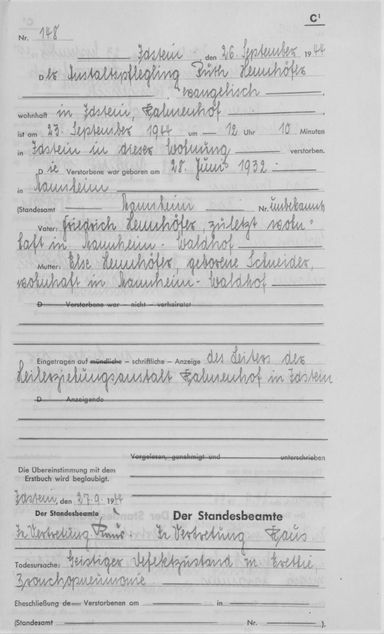 C¹
Nr. 148
Idstein, den 26. September 1944
Der Anstaltspflegling Ruth Lennhöfer
evangelisch
wohnhaft in Idstein, Kalmenhof
ist am 23. September 1944 um 12 Uhr 10 Minuten
in Idstein in dieser Wohnung verstorben.
Die Verstorbene war geboren am 28. Juni 1932
in Mannheim
(Standesamt Mannheim Nr. unbekannt
Vater: Friedrich Lennhöfer, zuletzt wohn-
haft in Mannheim-Waldhof
Mutter: Else Lennhöfer, geborene Schneider,
wohnhaft in Mannheim-Waldhof
D Verstorbene war – nicht – verheiratet
Eingetragen auf mündliche – schriftliche – Anzeige des Leiters der
Heilerziehungsanstalt Kalmenhof in Idstein
D Anzeigende
Vorgelesen, genehmigt und unterschrieben
Die Übereinstimmung mit dem
Erstbuch wird beglaubigt.
Idstein, den 27.9. 1944
Der Standesbeamte
Der Standesbeamte
In Vertretung In Vertretung
Todesursache: Geistiger Defektzustand m. Erethie,
Bronchopneumonie
Eheschließung de Verstorbenen am in
(Standesamt Nr. ).